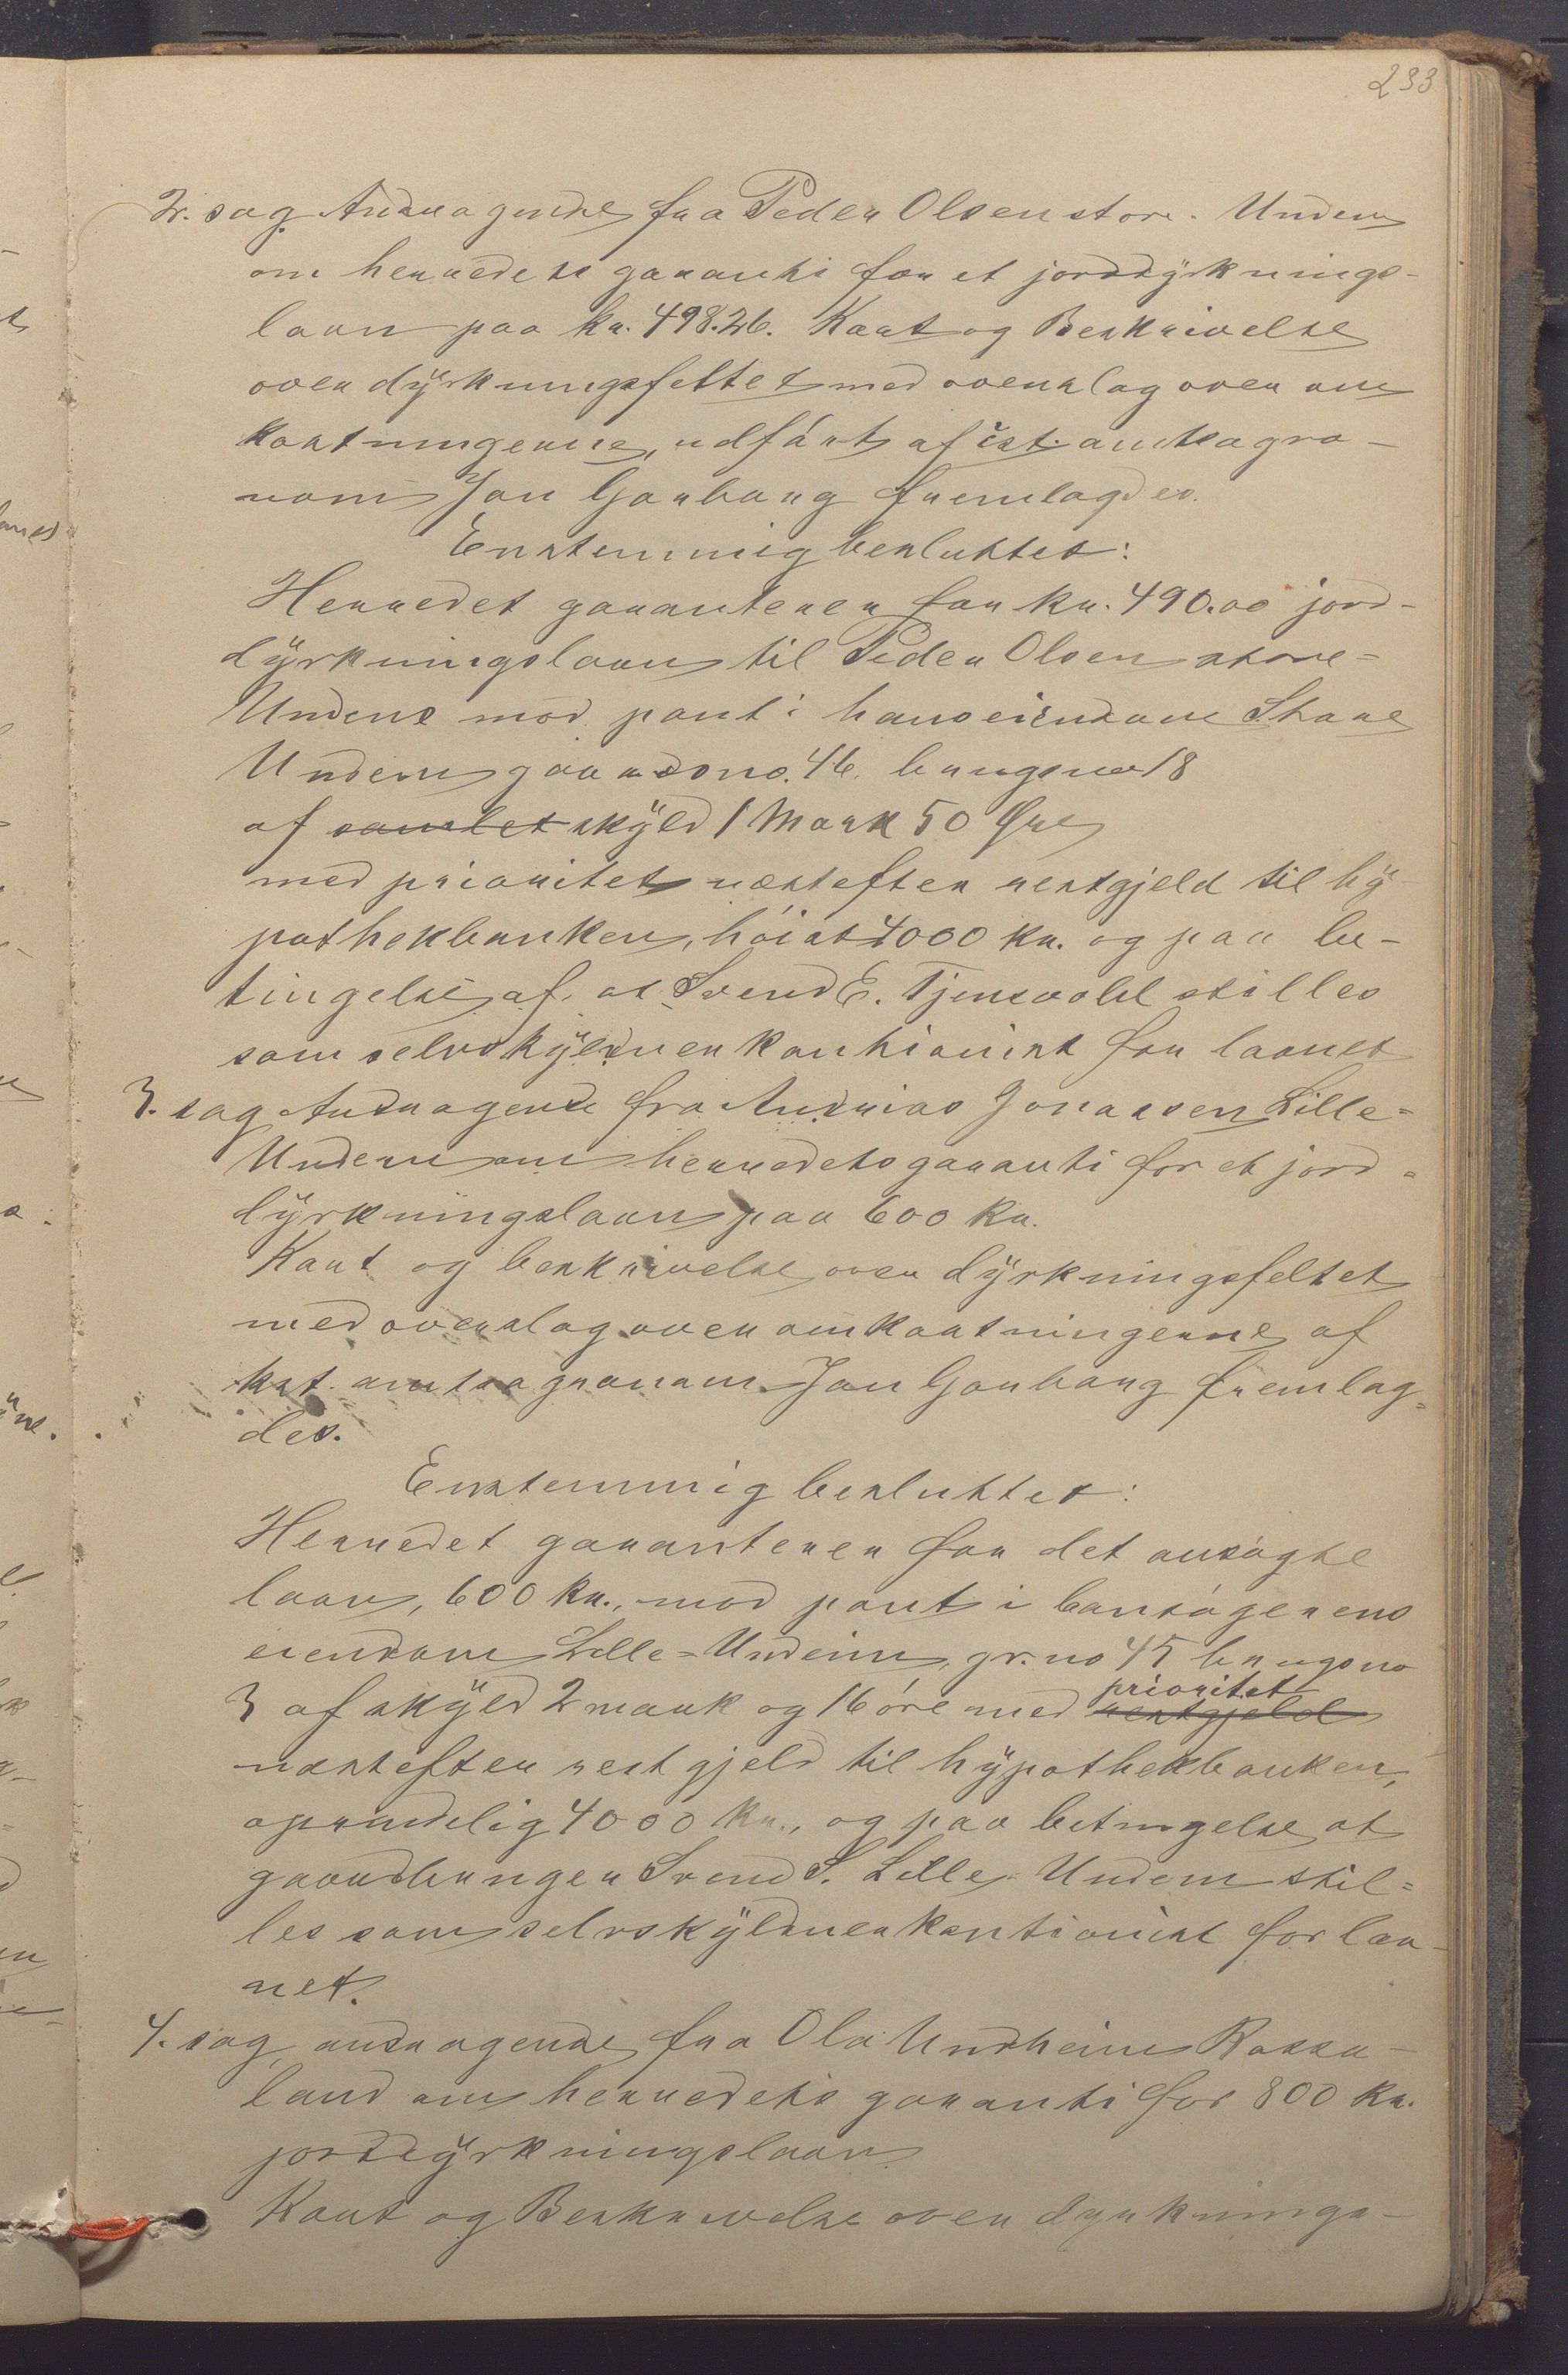 233
2. sag Andragende fra Peder Olsen store. Undem
om herredets garanti for et jorddyrknings-
laan paa kr. 498.26. Kart og Beskrivelse
over dyrkningsfeltet med overslag over om
kostningerne, udført af ist. amtsagro-
nom Jon Garborg fremlagdes.
Enstemmig besluttet:
Herredet garanterer for kr. 490.00 jord-
dyrkningslaan til Peder Olsen store=
Undem mod pant i hans eiendom Store
Undem gaardsno. 46. brugsno 18
af samlet skyld 1 Mark 50 Øre
med prioritet næstefter restgjeld til hy-
pothekbanken, höist 4000 kr. og paa be-
tingelse af. at Svend E. Tjensvold stilles
som selvskyldnerkautionist for laanet
3. sag Andragende fra Andreas Jonassen Lille=
Undem om herredets garanti for et jord=
dyrkningslaan paa 600 kr.
Kart og beskrivelse over dyrkningsfeltet
med overslag over omkostningerne af
kst. amtsagronom Jon Garborg fremlag=
des.
Enstemmig besluttet:
Herredet garanterer for det ansøgte
laan, 600 kr., mod pant i lansøgerens
eiendom Lille=Undeim, gr. no 45 brugsno
prioritet
3 af skyld 2 mark og 16 öre med restgjeld
næstefter restgjeld til hypothekbanken,
oprindelig 4000 kr., og paa betingelse at
gaardbruger Svend S. Lille-Undem stil=
les som selvskyldnerkautionist for laa-
net.
4. sag, andragende fra Ola Undheim Rossa-
land om herredets garanti for 800 kr.
jorddyrkningslaan
Kart og Beskrivelse over dyrknings-